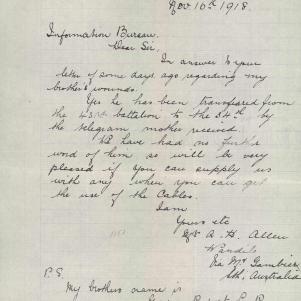 Nov 10th 1918.
Information Bureau.
Dear Sir,
In answer to your
letter of some days ago regarding my
brother's wounds.
Yes he has been transfered from
the 43rd battalion to the 34th by
the telegram mother received.
We have had no further
word of him so will be very
pleased if you can supply us
with any when you can get
the use of the Cables.
I am
Yours etc
A. H. Allen
Wandilo
Via Mt Gambier
Sth. Australia
P.S.
My brothers name is